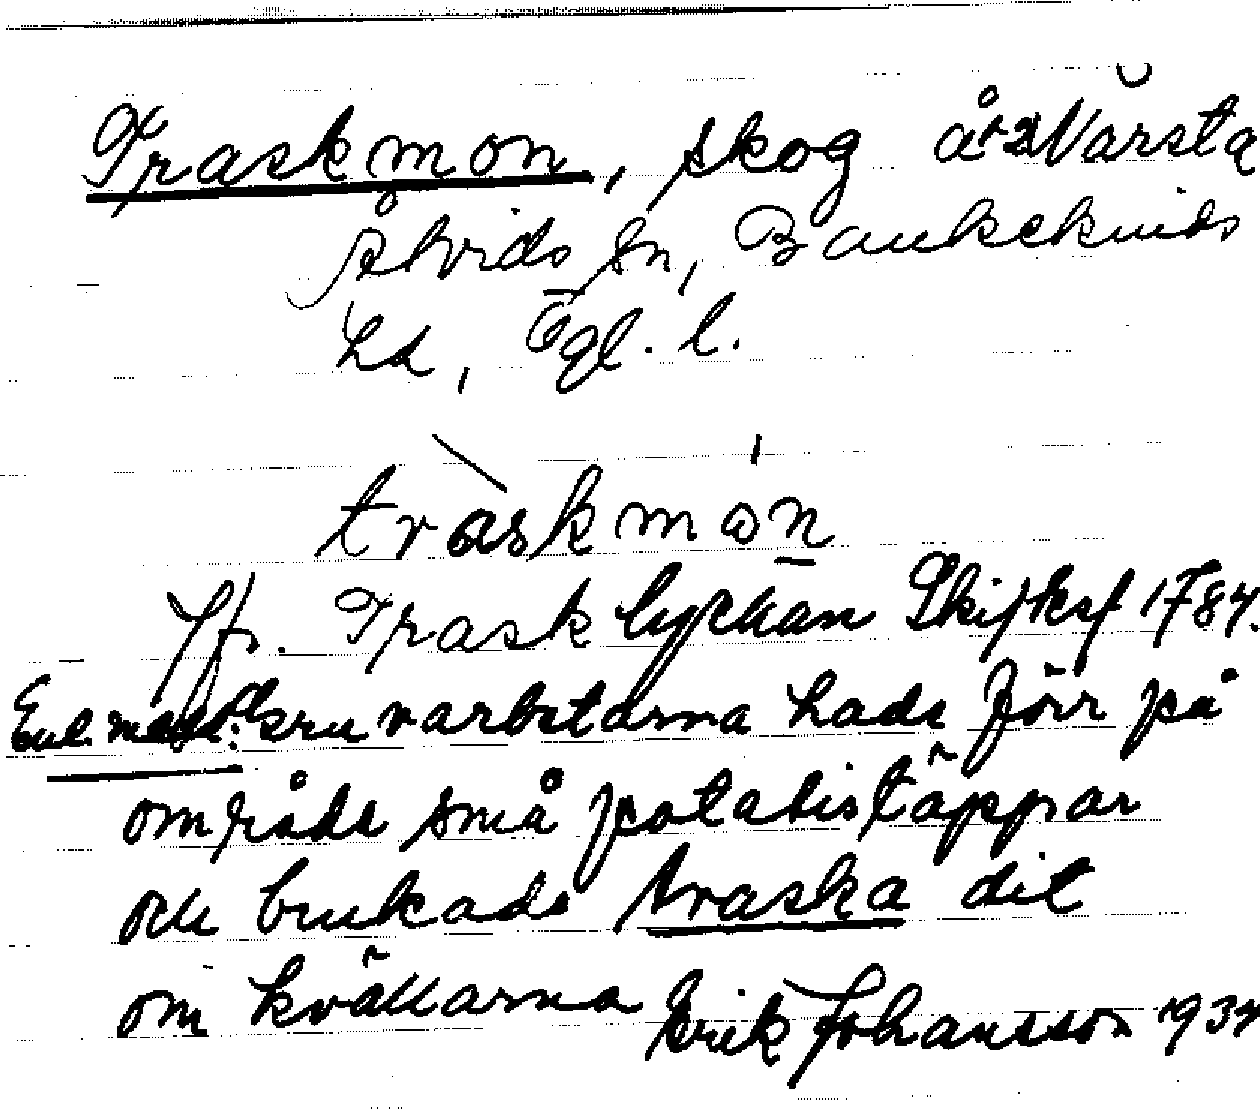 Traskmon, skog å Värsta
Åtvids sn, Bankekinds
hd, Ögl. l.
tràskmón
Jfr. Trasklyckan Skifteskf 1784.
Enl. medd. gruvarbetarna hade förr på
område små potatistäppar
och brukade traska dit
om kvällarna Erik Johansson 1934